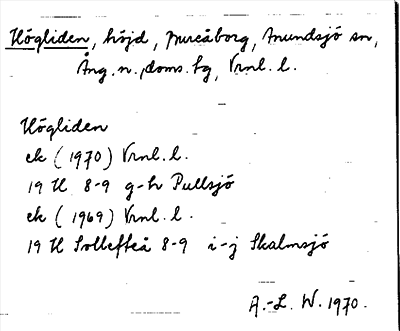 Högliden, höjd, Mureåborg, Anundsjö sn,
Ång. n. doms. fg, Vrnl. l.
Högliden
ek (1970) Vrnl. l.
19 H 8-9 g-h Pullsjö
ek (1969) Vrnl. l.
19 H Sollefteå 8-9 i-j Skalmsjö
A.-L. W. 1970.